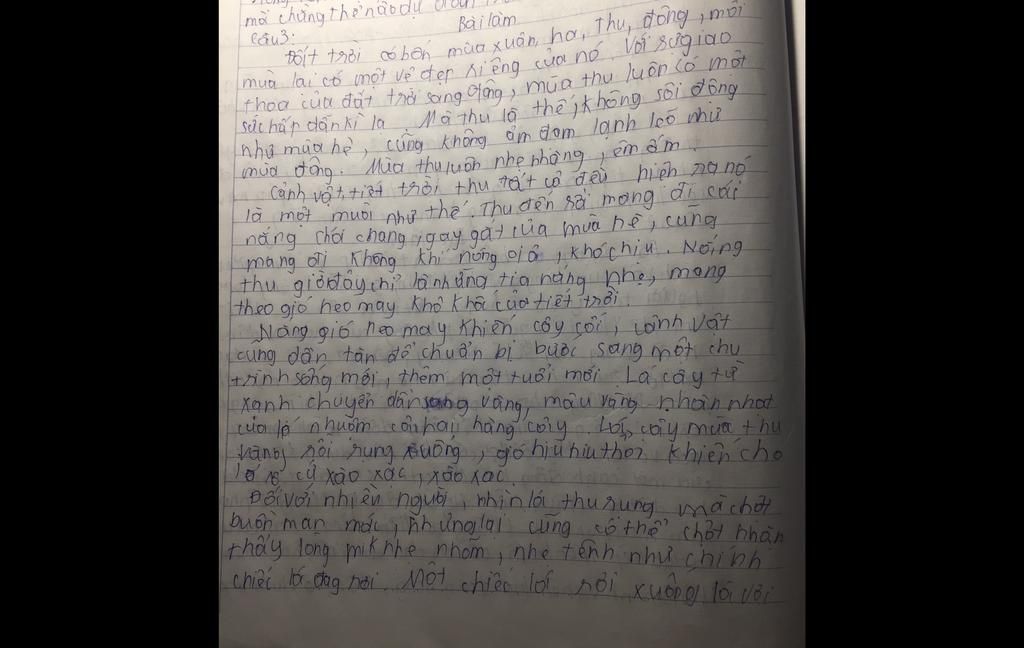 mà chẳng thể nào dự đoán
Bài làm
Câu 3:
Đất trời có bốn mùa xuân, hạ, thu, đông, mỗi
mùa lại có một vẻ đẹp riêng của nó. Với sự giao
thoa của đất trời sang đông, mùa thu luôn có một
sức hấp dẫn kì lạ. Mà thu là thế, không sôi động
như mùa hè, cũng không ảm đạm lạnh lẽo như
mùa đông. Mùa thu luôn nhẹ nhàng, êm ấm.
Cảnh vật, tiết trời thu tất cả đều hiện ra nó
là một muôi như thế. Thu đến rồi mang đi cái
nắng chói chang, gay gắt của mùa hè, cũng
mang đi không khí nóng giả, khó chịu. Nắng
thu giờ đây chỉ là những tia nắng nhẹ, mang
theo gió heo may khô khô của tiết trời.
Nàng gió heo may khiến cây cối, cảnh vật
cung dần tàn để chuẩn bị bước sang một chu
trình sống mới, thêm một tuổi mới. Lá cây từ
xanh chuyển dần sang vàng, màu vàng nhàn nhạt
của lá nhuốm cả hai hàng cây. Lá cây mùa thu
vàng rồi rụng xuống, gió hiu hiu thổi khiến cho
lá cứ xào xạc, xào xạc.
Đối với nhiền người, nhìn lá thu rụng mà chợt
buồn man mác, nhưng lại cũng có thể chợt nhận
thấy lòng mik nhẹ nhõm, nhẹ tênh như chính
chiếc lá đag rơi. Một chiếc lá rơi xuống là với